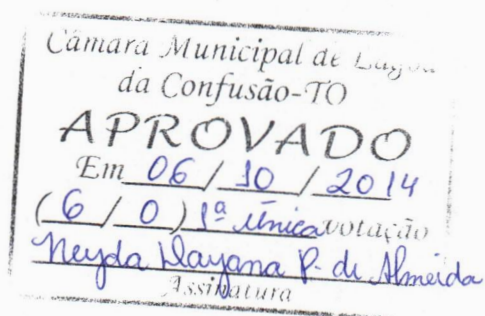 Câmara Municipal de Lagoa
da Confusão-TO
APROVADO
Em 06 / 10 / 2014
( 6 / 0 ) 1ª única votação
Neyda Dayana P. de Almeida
Assinatura